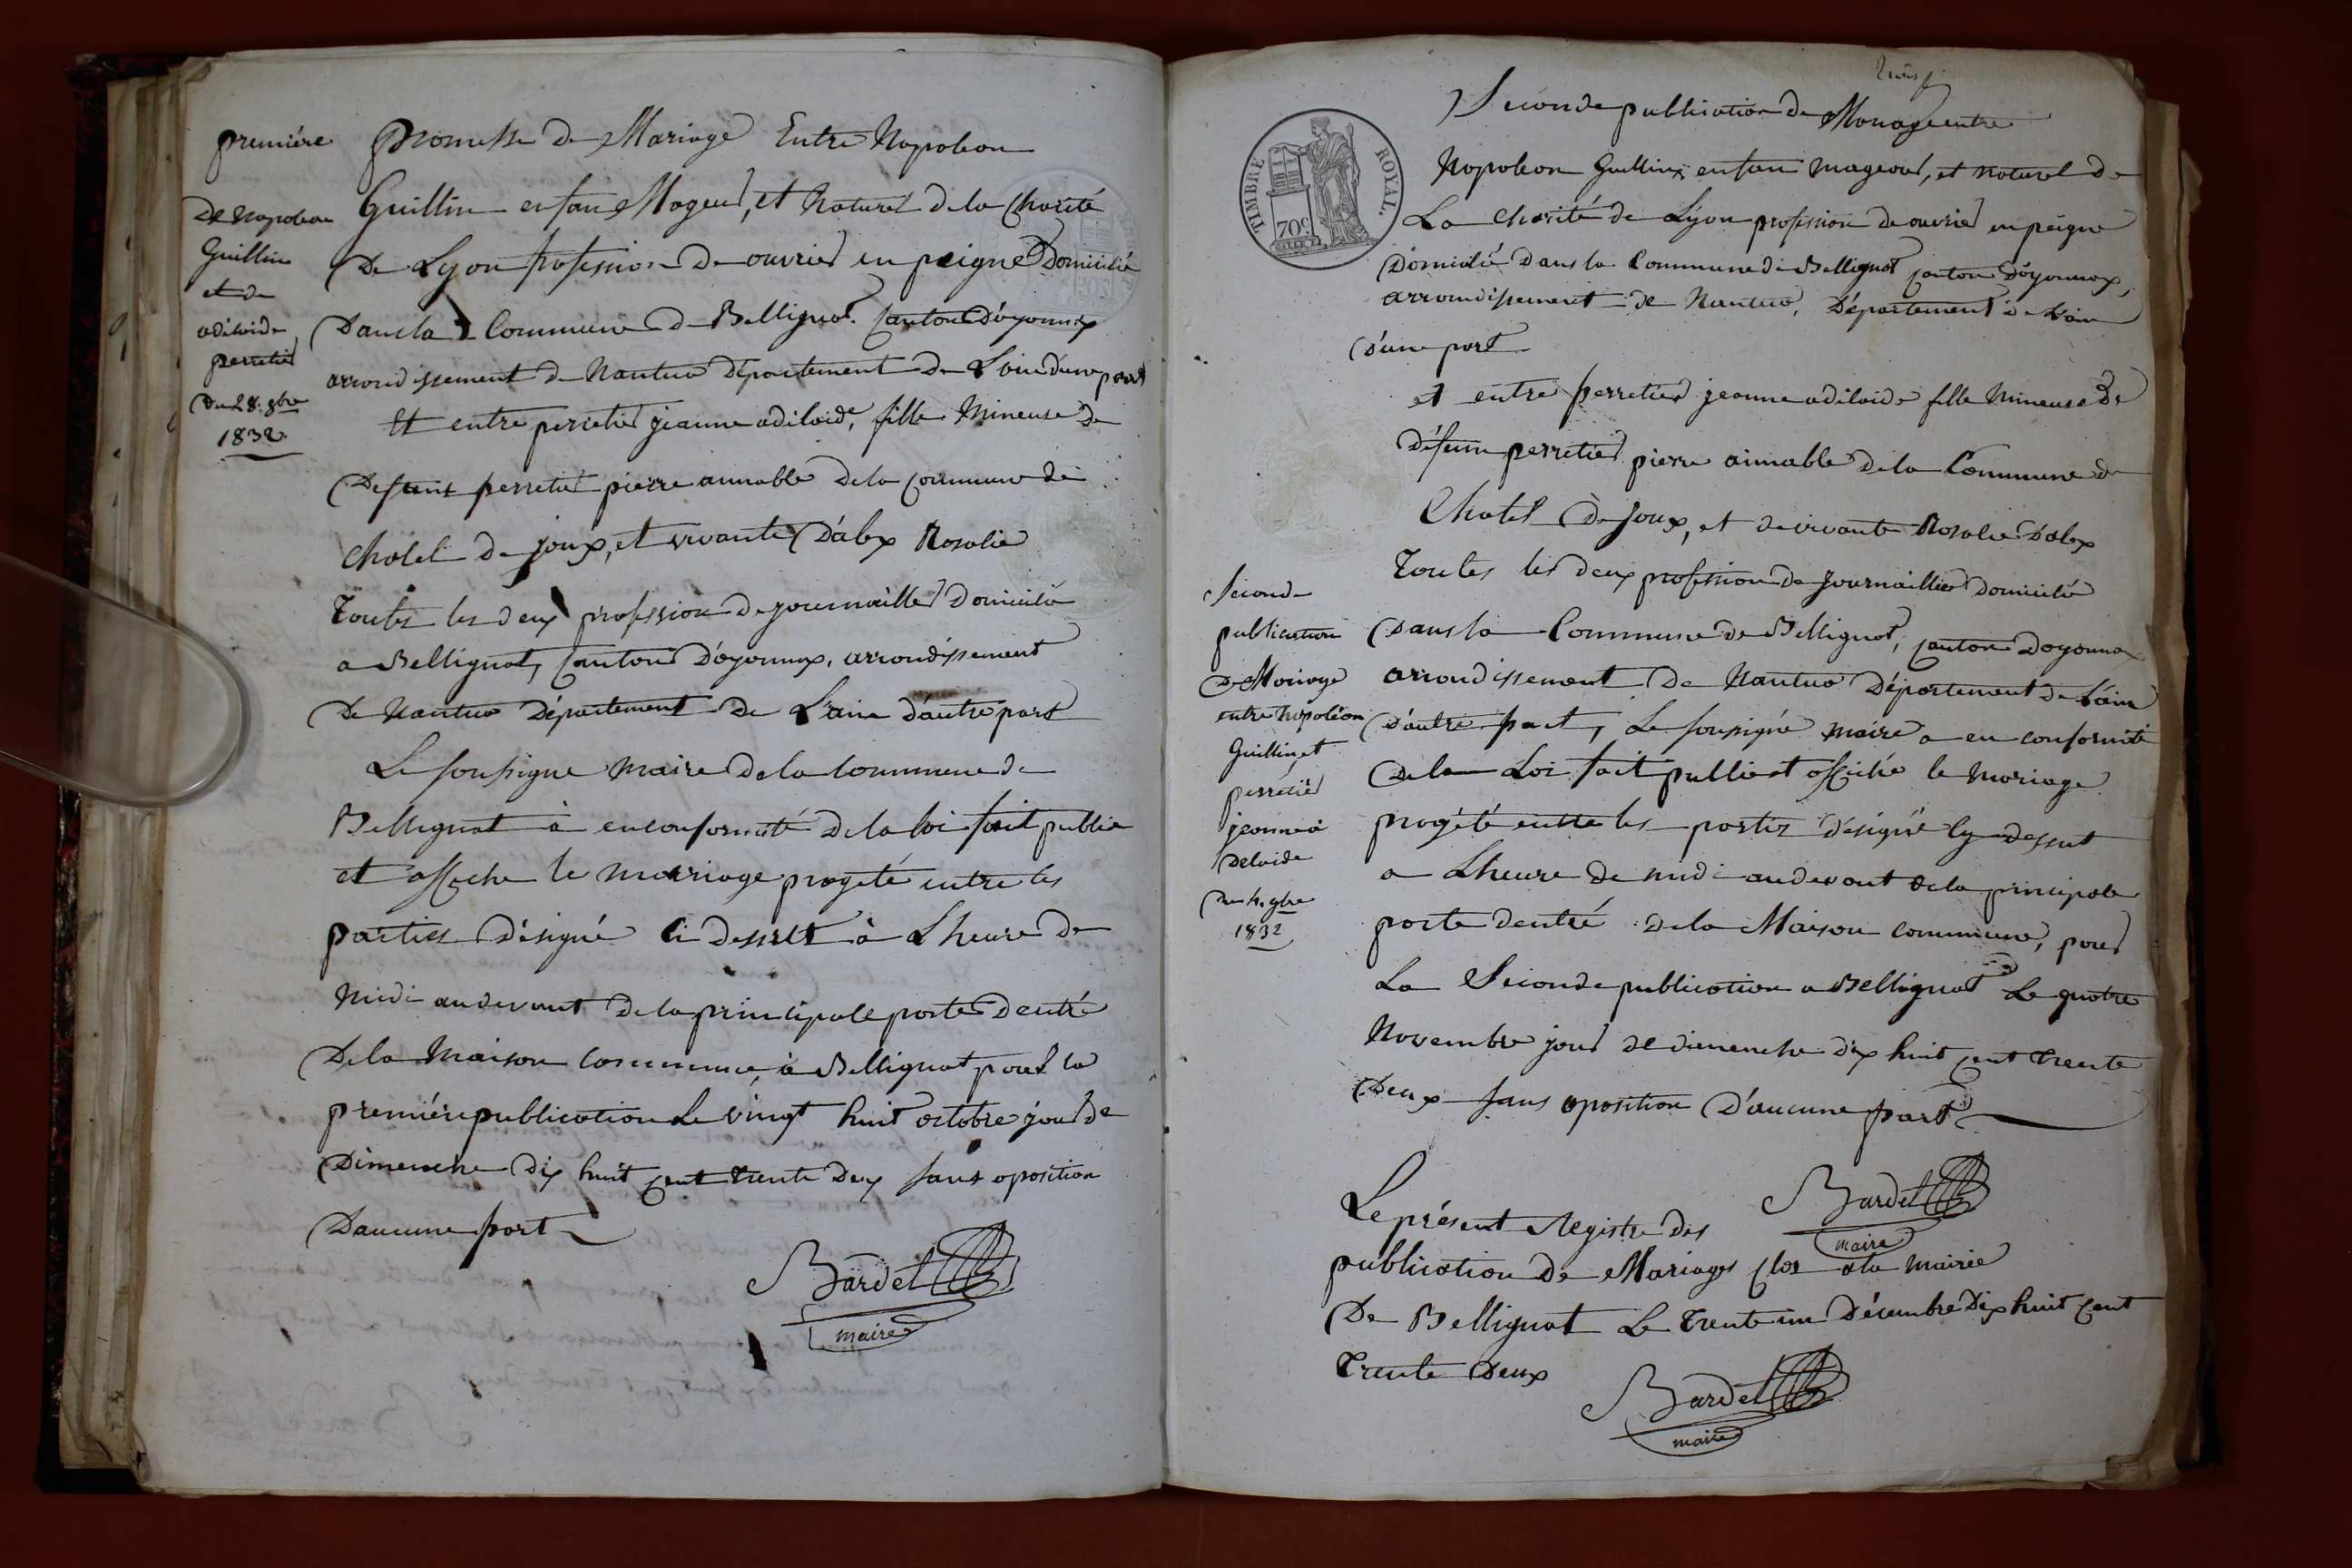 première
De Napoléon
Guillin
et de
adélaide
perretier
Du 28. 8bre
1832.
Promesse de Mariage Entre Napoleon
Guillin enfan Mageur, et Naturel de la Charité
De Lyon profession De ouvrier en peigne Domicilié
Dans la Commune De Bellignat. Canton D'oyonnax
arrondissement de Nantua Département De L'ain d'une part
Et entre perretier jeanne adilaide, fille Mineuse De
Defunt perretier pierre aimable De la Commune De
Chatel De joux, et vivante D'alex Rosalie
Toutes les deux profession De journaillier Domicilié
a Bellignat, Canton D'oyonnax, arrondissement
De Nantua Département De L'ain d'autre part
Le soussigné Maire De la Commune De
Bellignat à en conformité De la loi fait publié
et affiché le Mariage progeté entre les
parties Désigné Ci Dessut à L'heure De
Midi au devant De la principale porte D'entré
De la Maison Commune, à Bellignat pour la
premiére publication Le vingt huit octobre jour De
Dimenche Dix huit Cent trente Deux sans oposition
D'aucune part
Bardet
maire
TIMBRE ROYAL.
70c
Seconde publication De Mariage entre
Napoléon Guillin enfan mageur, et naturel De
La Charité de Lyon profession de ouvrier en peigne
Domicilié Dans la Commune de Bellignat Canton D'oyonnax,
arrondissement de Nantua, Département De L'ain
D'une part
et entre perretier jeanne adilaide fille Mineuse De
Défunt perretier pierre aimable De la Commune De
Chatel De joux, et de vivante Rosalie D'alex
Toutes les deux profession De journaillier Domicilié
Dans la Commune De Bellignat, Canton Doyonnax
arrondissement De Nantua Département De L'ain
D'autre part, Le soussigné Maire a en conformité
De la Loi fait publié et affiché le Mariage
progété entre les parties Désigné Cy dessut
a L'heure De midi au devant De la principale
porte D'entré De la Maison commune, pour
La Seconde publication a Bellignat Le quatre
Novembre jour De Dimenche Dix huit Cent trente
Deux sans oposition D'aucune part
Seconde
publication
De Mariage
entre Napoléon
Guillin et
perretier
jeanne a
Delaide
Du 4. 9bre
1832
Bardet
maire
Le présent Registre Des
publication De Mariages Clos a la Mairie
De Bellignat Le trente un Décembre Dix huit Cent
Trente Deux
Bardet
maire